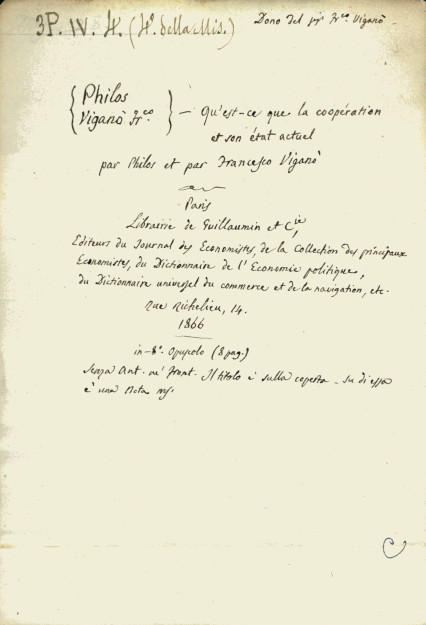 3P. IV. 4. (4º della Mis.)
Dono del sigr Frco Viganò
Philos
Viganò Frco. — Qu'est-ce que la coopération
et son état actuel
par Philos et par Francesco Viganò
Paris
Librairie de Guillaumin et Cie,
Editeurs du Journal des Economistes, de la Collection des principaux
Economistes, du Dictionnaire de l'Economie politique,
du Dictionnaire universel du commerce et de la navigation, etc.
Rue Richelieu, 14.
1866
in-8º. Opusolo (8 pag.)
Senza Ant. nè front. Il titolo è sulla coperta - su di essa
è una Nota ms.